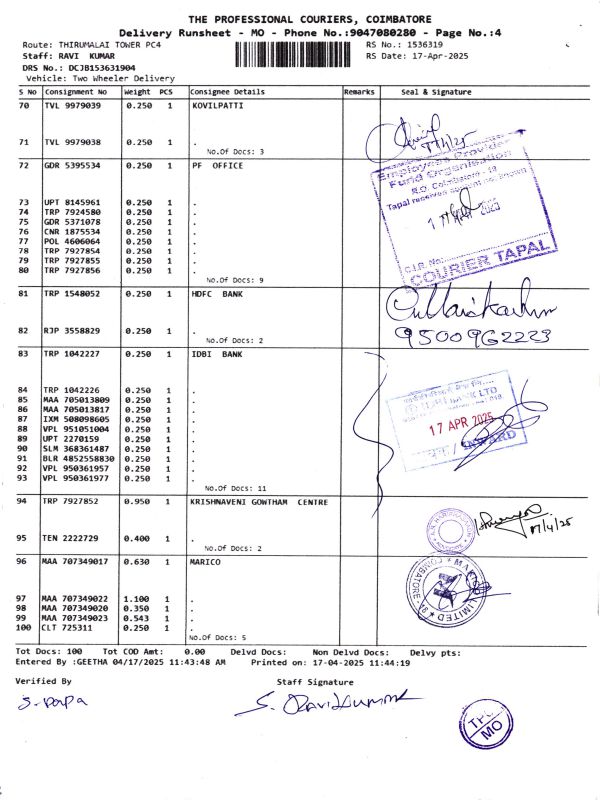 THE PROFESSIONAL COURIERS, COIMBATORE
Delivery Runsheet - MO - Phone No.:9047080280 - Page No.:4
Route: THIRUMALAI TOWER PC4 RS No.: 1536319
Staff: RAVI KUMAR RS Date: 17-Apr-2025
DRS No.: DCJB153631904
Vehicle: Two Wheeler Delivery
S No Consignment No Weight PCS Consignee Details Remarks Seal & Signature
70 TVL 9979039 0.250 1 KOVILPATTI
71 TVL 9979038 0.250 1 .
No.Of Docs: 3
17/4/25
72 GDR 5395534 0.250 1 PF OFFICE
73 UPT 8145961 0.250 1 .
74 TRP 7924580 0.250 1 .
75 GDR 5371078 0.250 1 .
76 CNR 1875534 0.250 1 .
77 POL 4606064 0.250 1 .
78 TRP 7927854 0.250 1 .
79 TRP 7927855 0.250 1 .
80 TRP 7927856 0.250 1 .
No.Of Docs: 9
Employees Provident
Fund Organisation
R.O. Coimbatore - 18
Tapal received
COURIER TAPAL
81 TRP 1548052 0.250 1 HDFC BANK
82 RJP 3558829 0.250 1 .
No.Of Docs: 2
9500962223
83 TRP 1042227 0.250 1 IDBI BANK
84 TRP 1042226 0.250 1 .
85 MAA 705013809 0.250 1 .
86 MAA 705013817 0.250 1 .
87 IXM 508098605 0.250 1 .
88 VPL 951051004 0.250 1 .
89 UPT 2270159 0.250 1 .
90 SLM 368361487 0.250 1 .
91 BLR 4852558830 0.250 1 .
92 VPL 950361957 0.250 1 .
93 VPL 950361977 0.250 1 .
No.Of Docs: 11
BANK LTD
17 APR 2025
INWARD
94 TRP 7927852 0.950 1 KRISHNAVENI GOWTHAM CENTRE
95 TEN 2222729 0.400 1 .
No.Of Docs: 2
17/4/25
96 MAA 707349017 0.630 1 MARICO
97 MAA 707349022 1.100 1 .
98 MAA 707349020 0.350 1 .
99 MAA 707349023 0.543 1 .
100 CLT 725311 0.250 1 .
No.Of Docs: 5
Tot Docs: 100 Tot COD Amt: 0.00 Delvd Docs: Non Delvd Docs: Delvy pts:
Entered By :GEETHA 04/17/2025 11:43:48 AM Printed on: 17-04-2025 11:44:19
Verified By Staff Signature
S. Ravikumar
MO